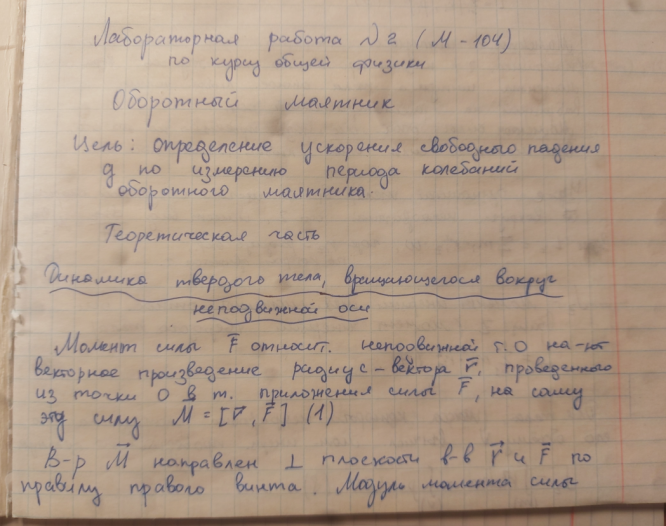 Лабораторная работа №2 (М-104)
по курсу общей физики
Оборотный маятник
Цель: определение ускорения свободного падения
g по измерению периода колебаний
оборотного маятника.
Теоретическая часть
Динамика твердого тела, вращающегося вокруг
неподвижной оси
Момент силы F̅ относит. неподвижной т. О на-ют
векторное произведение радиус-вектора r̅, проведенного
из точки О в т. приложения силы F̅, на саму
эту силу M = [r̅, F̅] (1)
В-р M⃗ направлен ⊥ плоскости в-в r⃗ и F⃗ по
правилу правого винта. Модуль момента силы